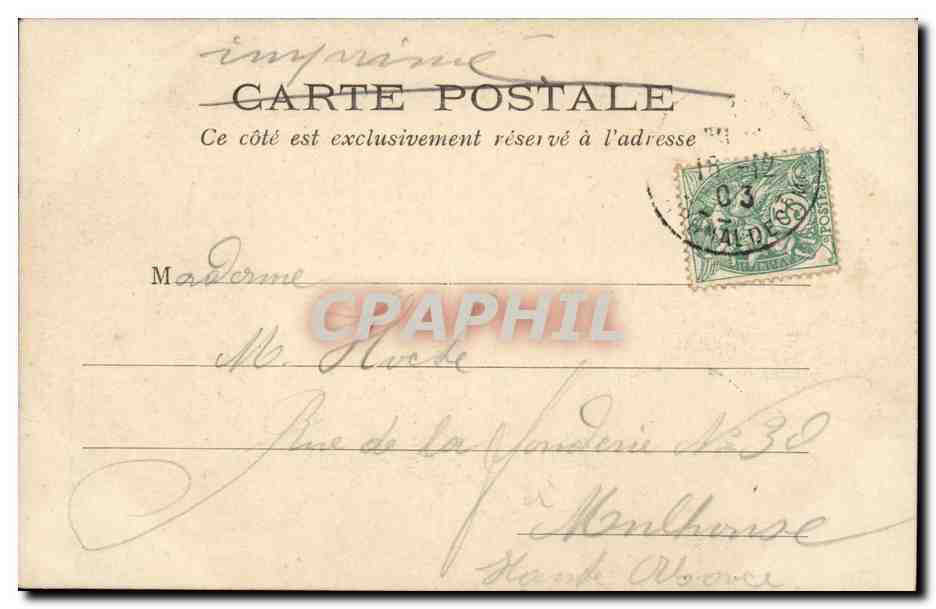 imprimé
CARTE POSTALE
Ce côté est exclusivement réservé à l'adresse
18 -12
03
VAL DE
5
POSTES
Madame
CPAPHIL
M. Hoche
Rue de la fonderie No 38
à Mulhouse
Haute Alsace